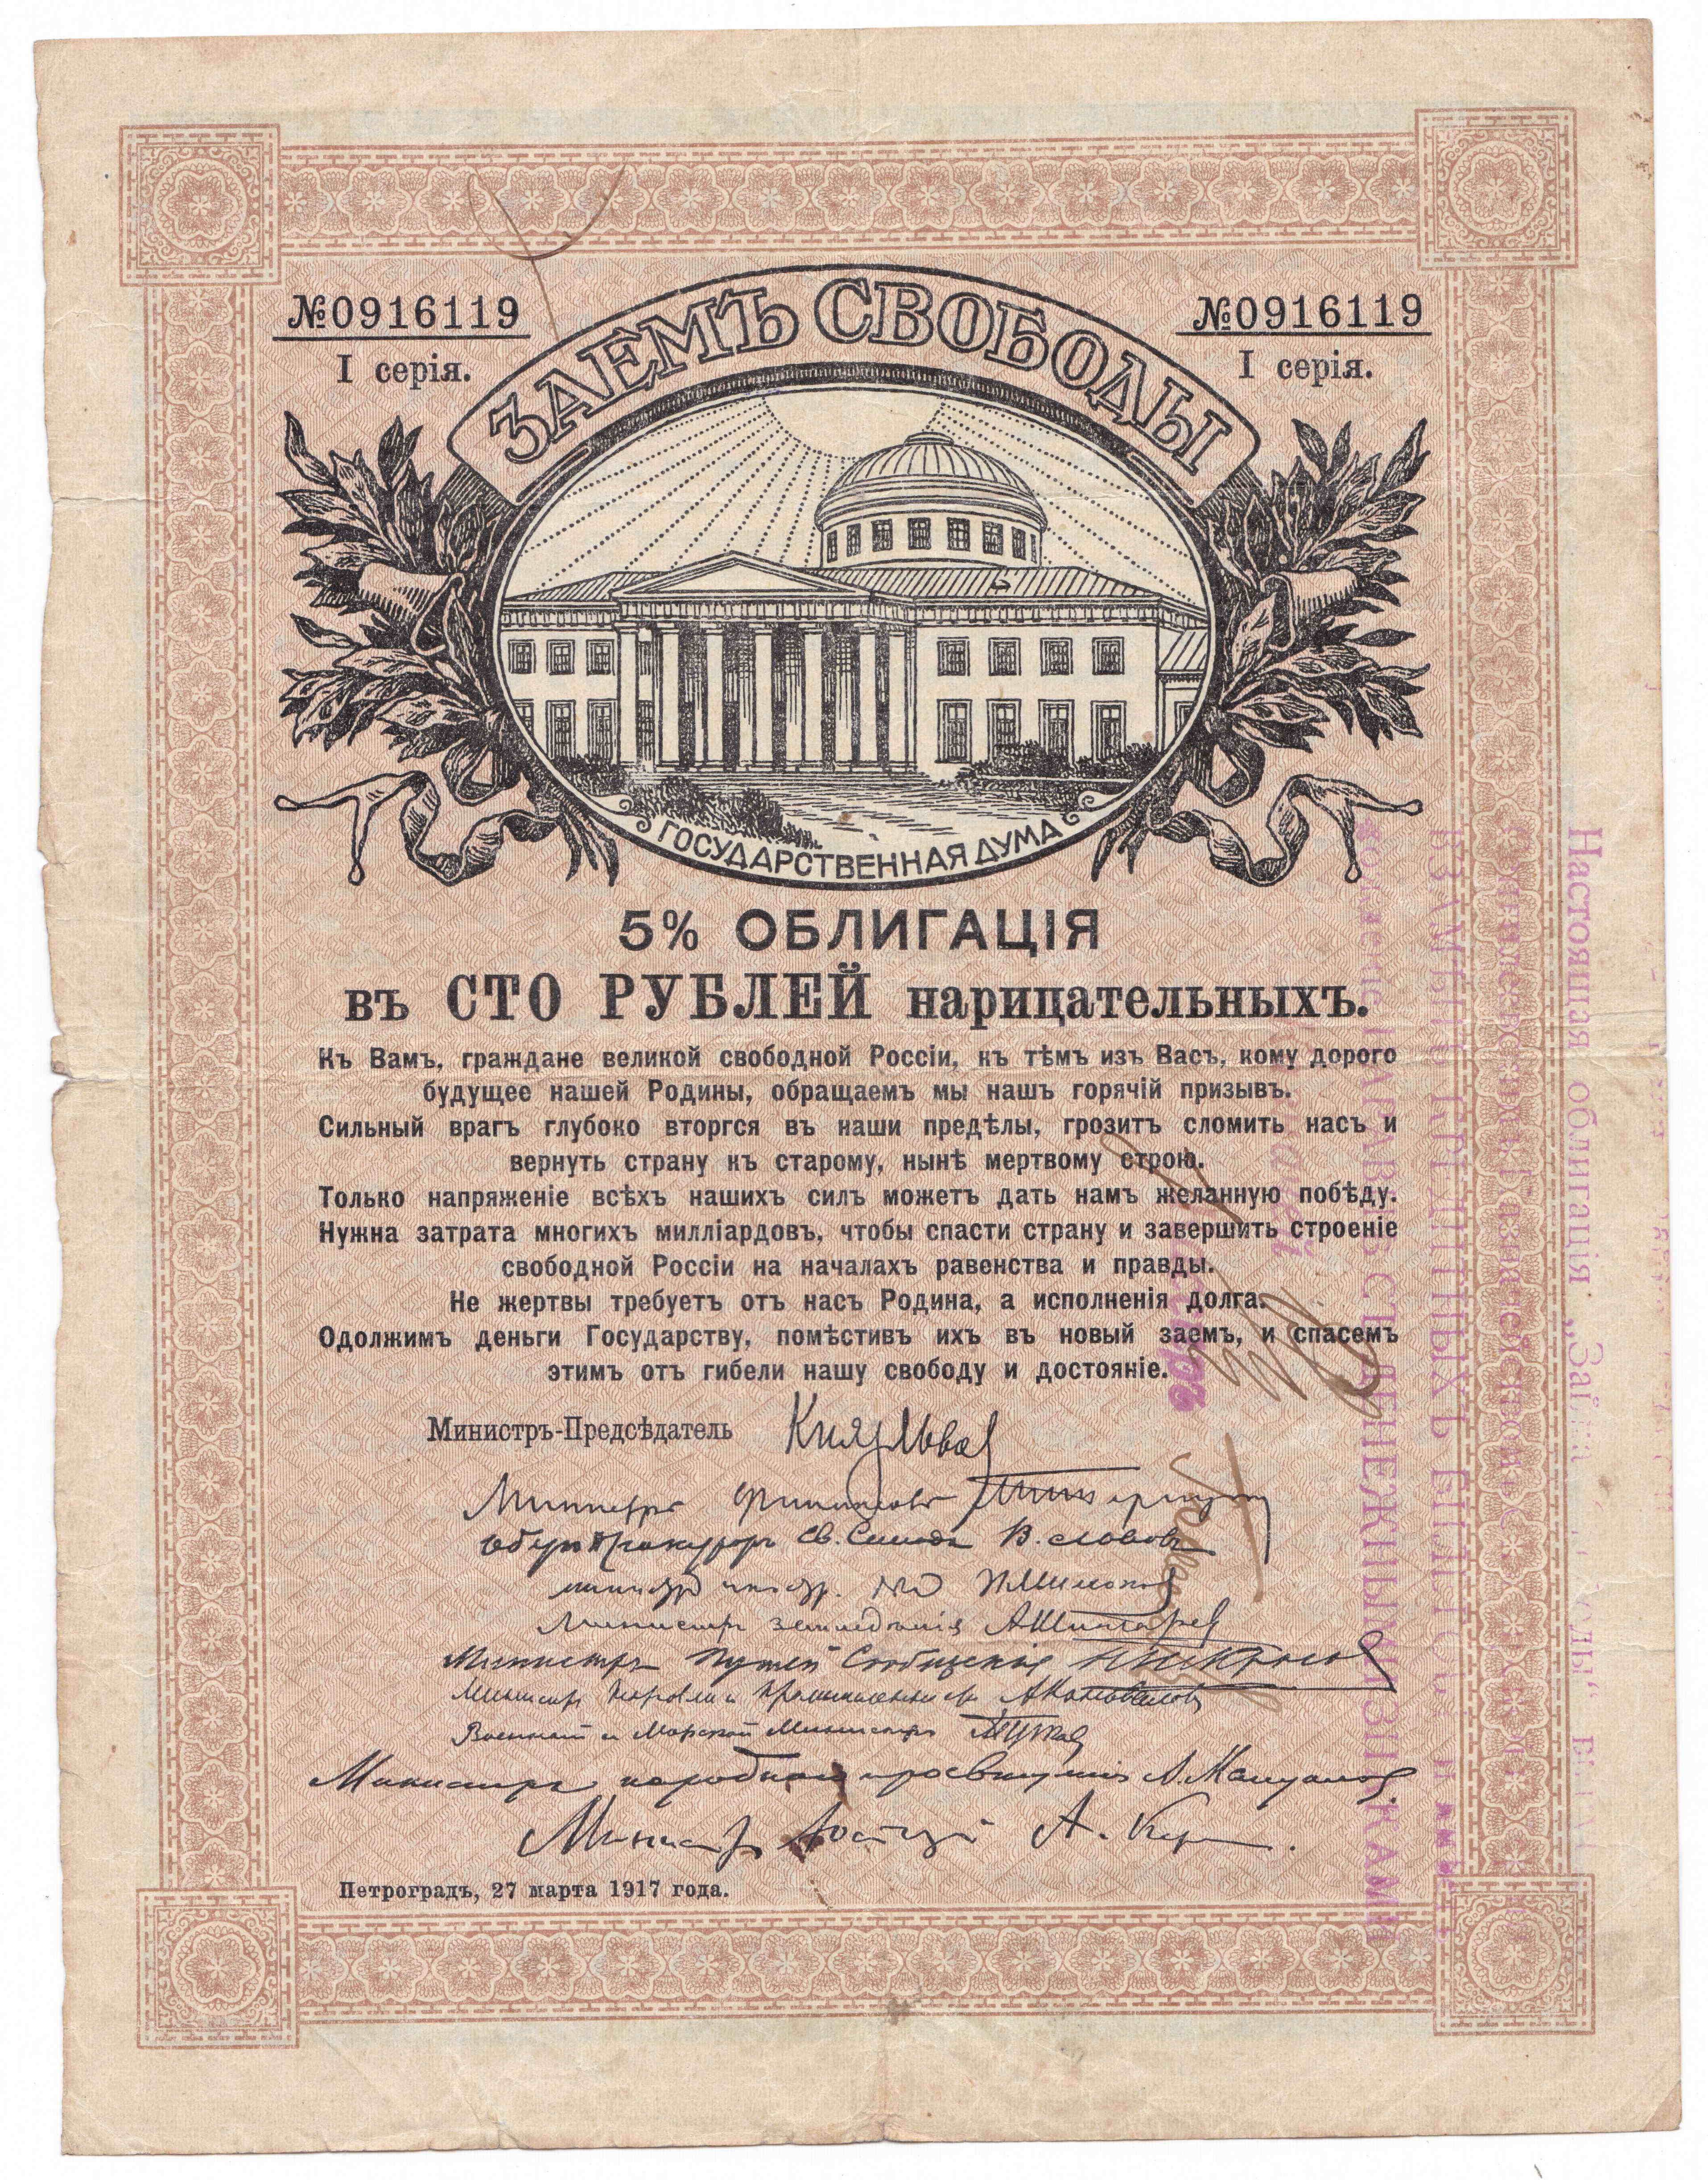 №0916119
I серія.
ЗАЕМЪ СВОБОДЫ
№0916119
I серія.
ГОСУДАРСТВЕННАЯ ДУМА
5% ОБЛИГАЦІЯ
въ СТО РУБЛЕЙ нарицательныхъ.
Къ Вамъ, граждане великой свободной Россіи, къ тѣмъ изъ Васъ, кому дорого
будущее нашей Родины, обращаемъ мы нашъ горячій призывъ.
Сильный врагъ глубоко вторгся въ наши предѣлы, грозитъ сломить насъ и
вернуть страну къ старому, нынѣ мертвому строю.
Только напряженіе всѣхъ нашихъ силъ можетъ дать намъ желанную побѣду.
Нужна затрата многихъ милліардовъ, чтобы спасти страну и завершить строеніе
свободной Россіи на началахъ равенства и правды.
Не жертвы требуетъ отъ насъ Родина, а исполненія долга.
Одолжимъ деньги Государству, помѣстивъ ихъ въ новый заемъ, и спасемъ
этимъ отъ гибели нашу свободу и достояніе.
Министръ-Предсѣдатель Князь Львов
Министръ финансовъ
Оберъ Прокуроръ Св. Синода В. Львовъ
Министръ земледѣлія А Шингарев
Министръ Путей Сообщенія Н Некрасов
Министръ Торговли и Промышленности А Коновалов
Военный и Морской Министръ А Гучков
Министръ народнаго просвѣщенія А. Мануйлов
Министр Юстиціи А. Кер
Петроградъ, 27 марта 1917 года.
Настоящая облигація „Займа